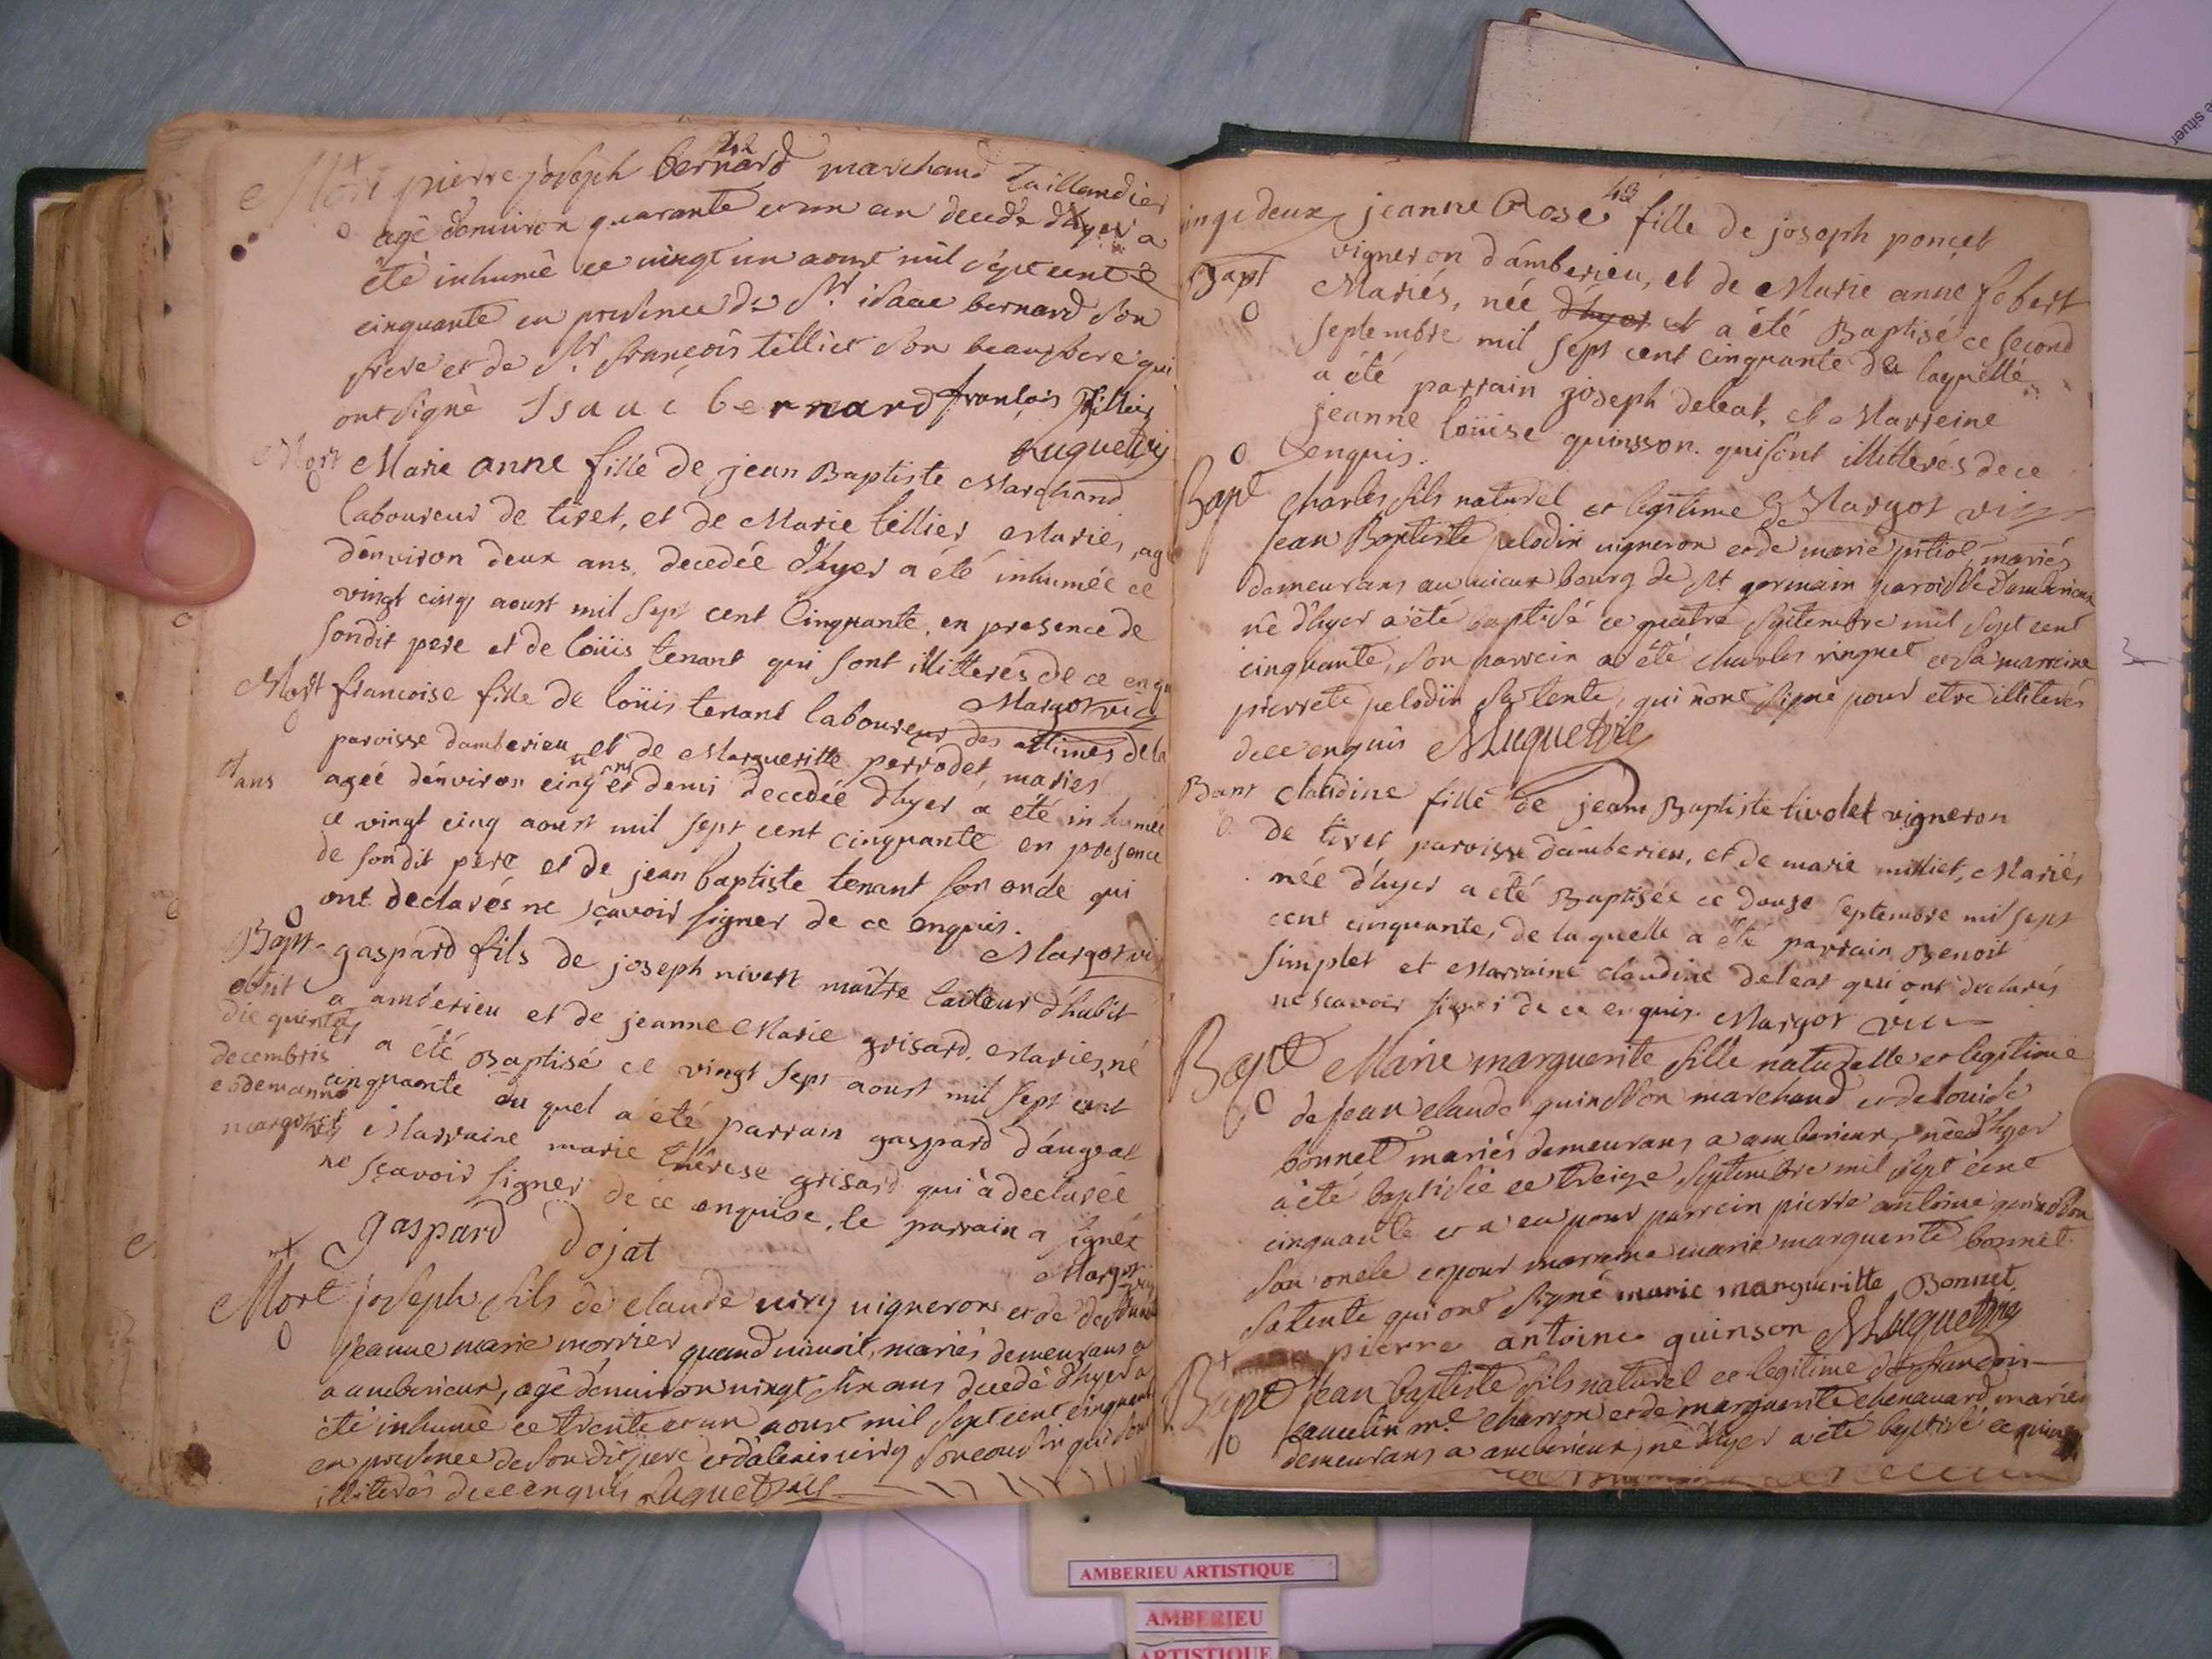 42
Mort pierre joseph bernard marchand taillandier
agé denuiron quarante et un an decede dhyer a
été inhumé ce vingt un aoust mil sept cent
cinquante en presence de Sr isaac bernard son
frere et de Sr françois tillier son beaufrere qui
ont signé Isaac bernard françois Tillier
Luguet vic
Mort Marie anne fille de jean Baptiste Marchand
laboureur de tiret, et de Marie tillier Mariés, agé
dénviron deux ans, decedée d'hyer a été inhumée ce
vingt cinq aoust mil sept cent Cinquante, en presence de
sondit pere et de loüis tenant qui sont illitterés de ce enqu
Margot vic
Mort francoise fille de loüis tenant laboureur des allimes de la
paroisse damberieu et de Margueritte perrodet, mariés
ans agée dénviron cinq ans et demi decedée d'hyer a été inhumée
ce vingt cinq aoust mil sept cent cinquante en presence
de sondit pere et de jean baptiste tenant son oncle qui
ont declarés ne sçavoir signer de ce enquis.
Margot vi
Bapt gaspard fils de joseph nivert maître tailleur d'habit
obiit a amberieu et de jeanne Marie grisard, Mariés, né
die quinta
et a été Baptisé ce vingt sept aoust mil sept cent
decembris
cinquante du quel a été parrain gaspard d'augeat
eodem anno
margot
et Marraine marie thérese grisard qui a declarée
ne sçavoir signer de ce enquise, le parrain a signé
gaspard dojat
Margot vic
Mort joseph fils de claude viry vigneron et de
jeanne marie morrier quand vivoit, mariés demeurans
a amberieux, agé denuiron vingt six ans decedé d'hyer a
été inhumé ce trente et un aoust mil sept cent cinquant
en presence de son dit pere et d'alexis viry son cousin qui sont
illiterés de ce enquis Luguet vic
43
vingt deux jeanne Rose fille de joseph poncet
vigneron d'amberieu, et de Marie anne jobert
Bapt Mariés, née et a été Baptisé ce second
septembre mil sept cent cinquante de laquelle
a été parrain joseph deleat, et Marreine
jeanne loüise quinsson. qui sont illitterés de ce
enquis.
Margot vic
Bapt Charles fils naturel et legitime de
jean Baptiste pelodin vigneron et de marie pitiol mariés
demeurans au vieux bourg de st germain paroisse d'amberieux
né d'hyer a été baptisé ce quatre septembre mil sept cent
cinquante, son parrein a été charles ringuet et sa marreine
pierrete pelodin sa tente, qui n'ont signé pour etre illiterés
de ce enquis MLuguet vic
Bapt Claudine fille de jean Baptiste tivolet vigneron
de tiret paroisse damberieu, et de marie milliet, Mariés
née d'hyer a été Baptisée ce douze septembre mil sept
cent cinquante, de laquelle a été parrain Benoit
simplet et Marraine claudine deleat qui ont declarés
ne scavoir signer de ce enquis Margot vic
Bapt Marie marguerite fille naturelle et legitime
de jean claude quinsson marchand et de louise
bonnet mariés demeurans a amberieux, née d'hyer
a été baptisée ce treize septembre mil sept cent
cinquante et a eu pour parrein pierre antoine quinsson
son oncle et pour marreine marie marguerite bonnet
sa tente qui ont signé marie margueritte Bonnet
pierre antoine quinson MLuguet vic
Bapt jean baptiste fils naturel et legitime de francois
me charron et de marguerite chenavard mariés
demeurans a amberieux, né d'hyer a été baptisé ce
AMBERIEU ARTISTIQUE
AMBERIEU
ARTISTIQUE
e situer